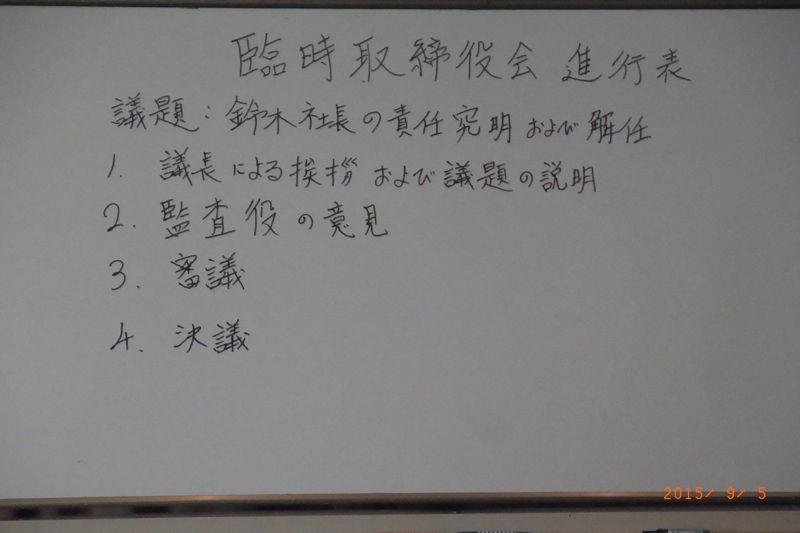 臨時取締役会 進行表
議題：鈴木社長の責任究明および解任
1. 議長による挨拶および議題の説明
2. 監査役の意見
3. 審議
4. 決議
2015/ 9/ 5